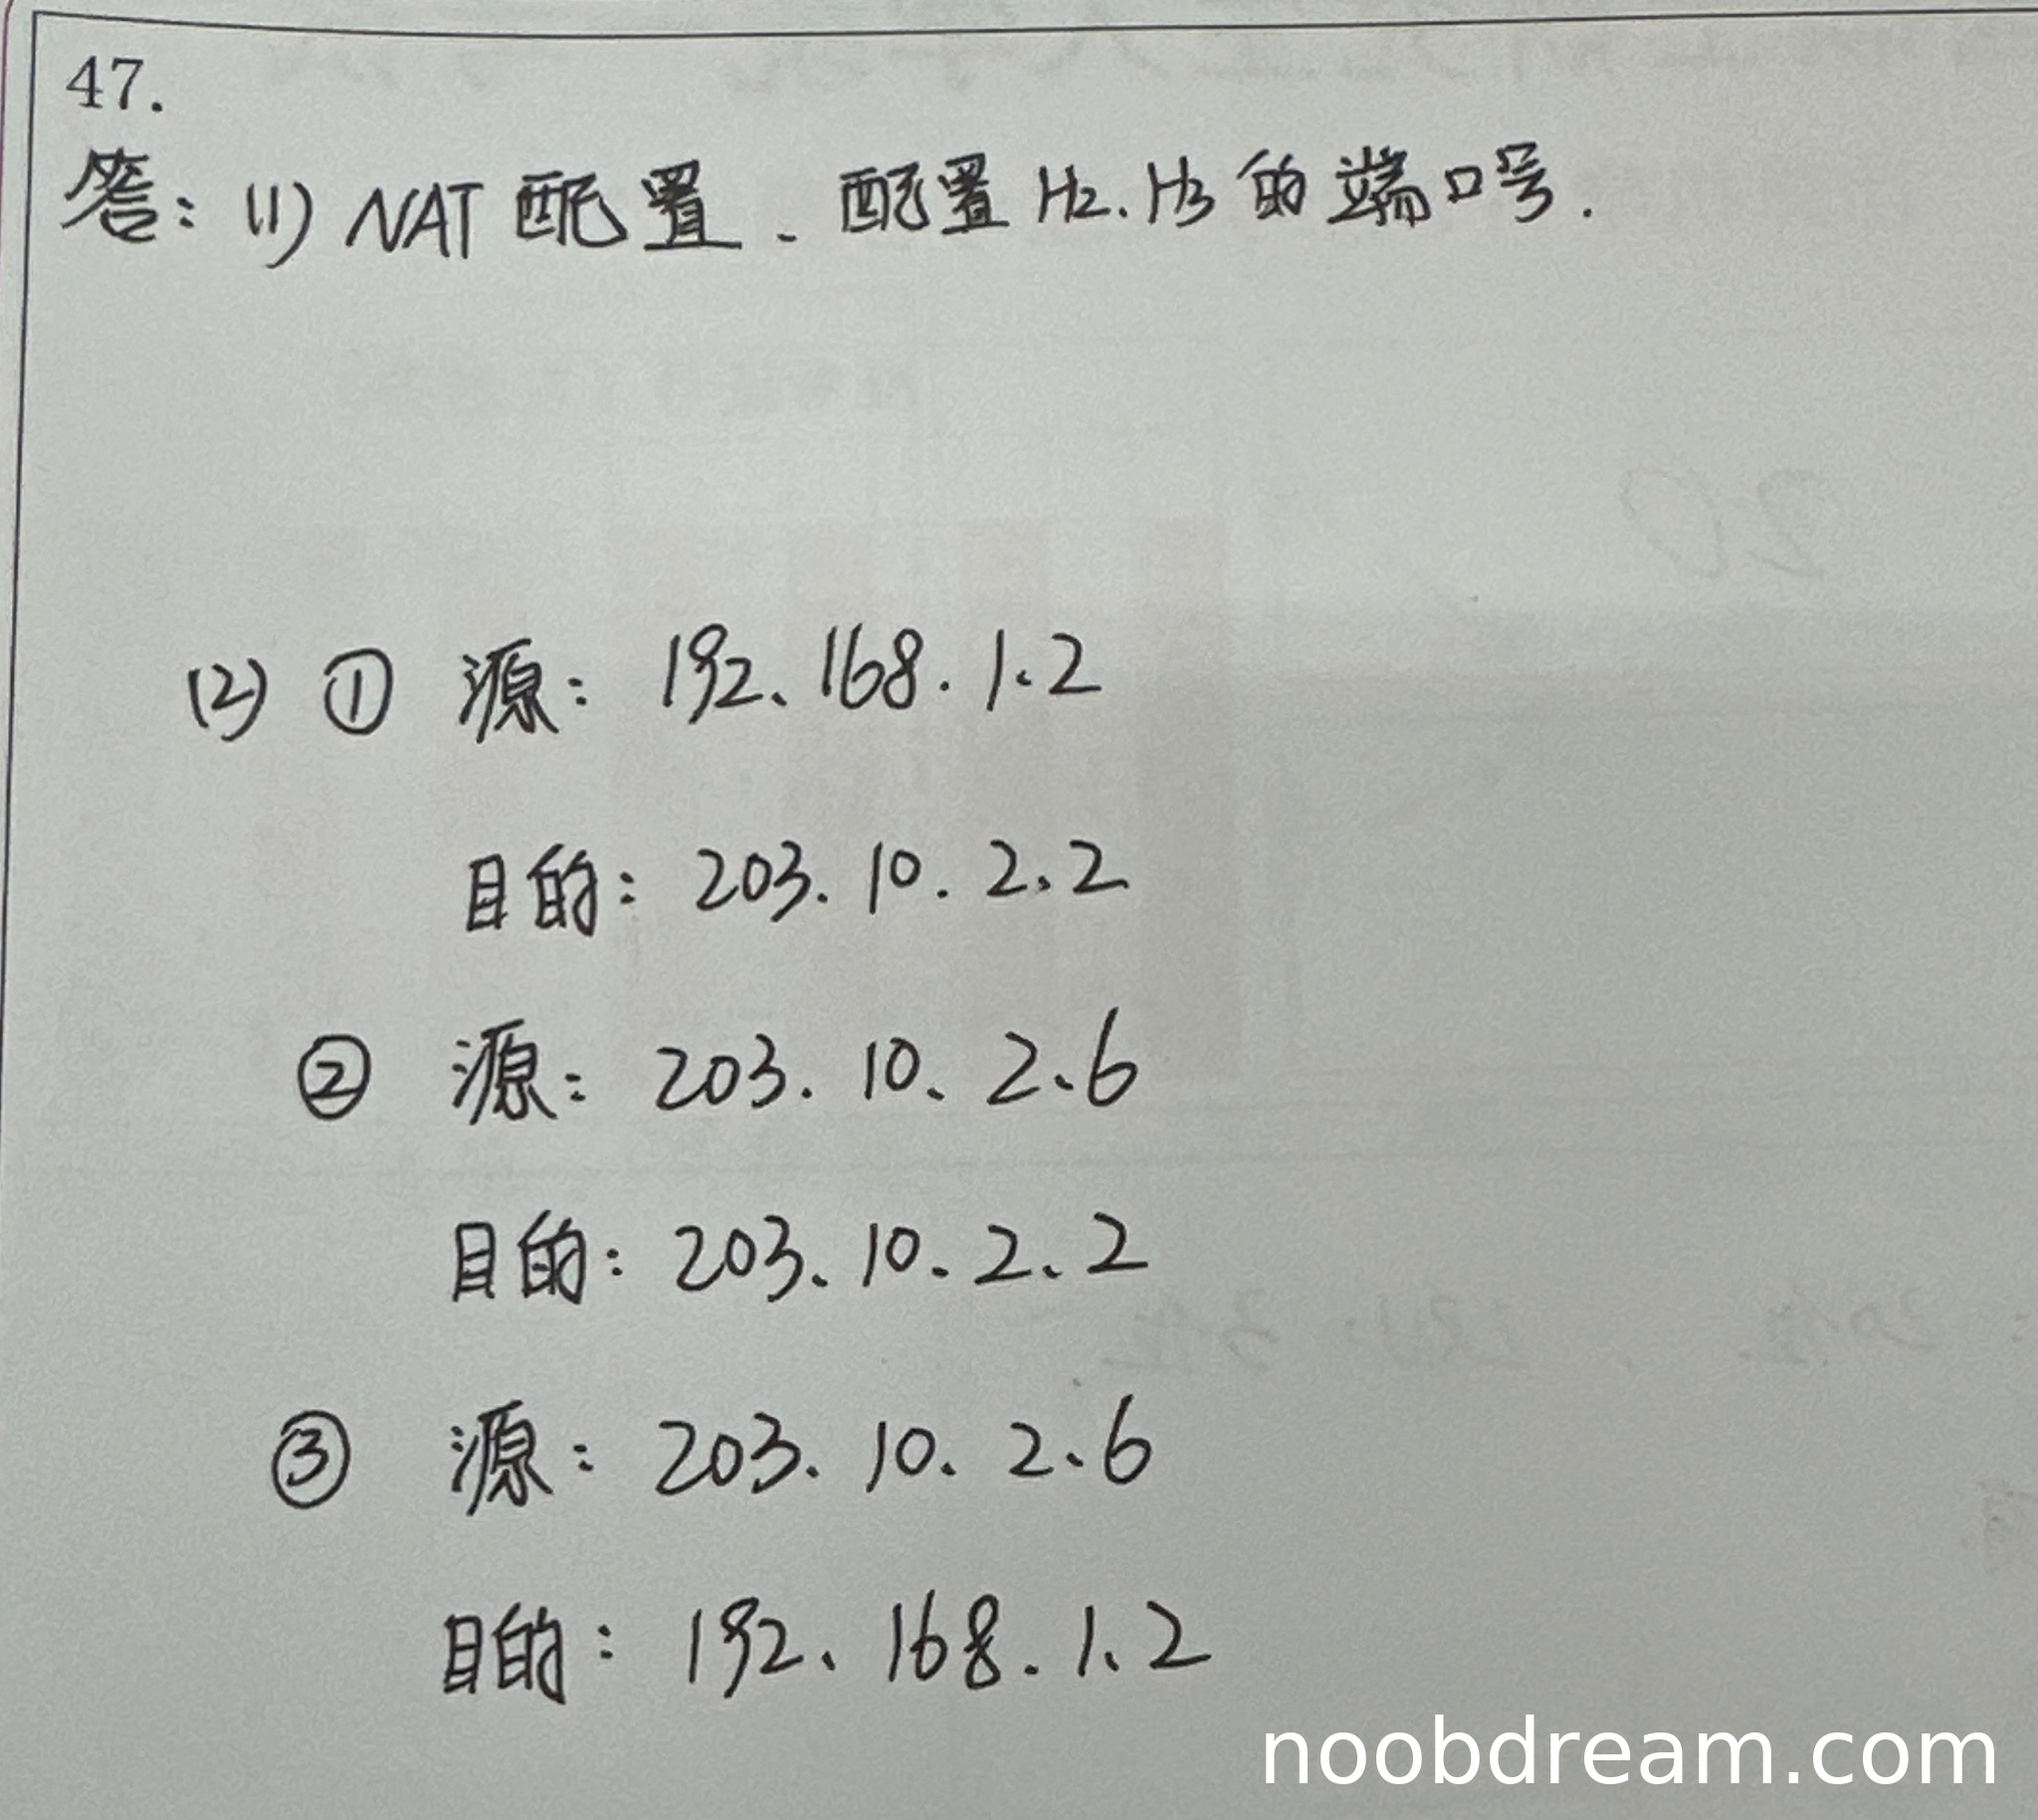 47.
答：(1) NAT 配置、配置 H2. H3 的端口号.
(2) ① 源：192.168.1.2
目的：203.10.2.2
② 源：203.10.2.6
目的：203.10.2.2
③ 源：203.10.2.6
目的：192.168.1.2
noobdream.com